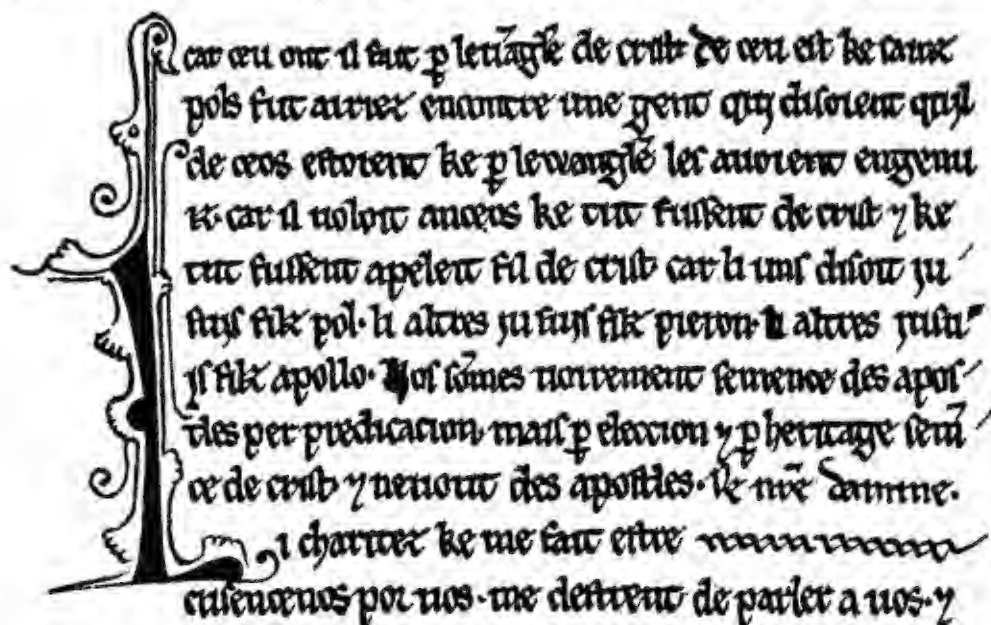 car ceu ont il fait p̲ leuãgle de crist· De ceu est ke sainz
pols fut airiez encontre une gent qui disoient quil
de ceos estoient ke p̲ lewangle les auoient engenu
iz· car il uoloit anceos ke tut fussent de crist ⁊ ke
tut fussent apeleit fil de crist car li uns disoit ju
suys filz pol· li altres ju suys filz pieron· li altres ju su
ys filz apollo· Nos sõmes uoirement semence des apos
tles per predicacion· mais p̲ eleccion ⁊ p̲ heritage semẽ
ce de crist· ⁊ neuout des apostles· De nr̃e damme·
i charitez ke me fait estre
cusencenos por uos· me destrent de parler a uos· ⁊